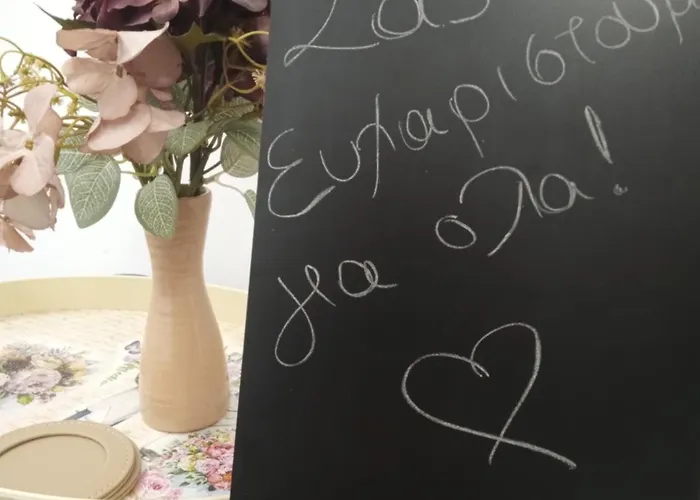 Σας
Ευχαριστούμ
για όλα!